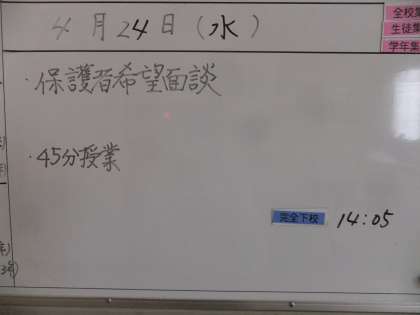 4月24日(水)
全校集
生徒集
学年集
・保護者希望面談
・45分授業
完全下校 14:05